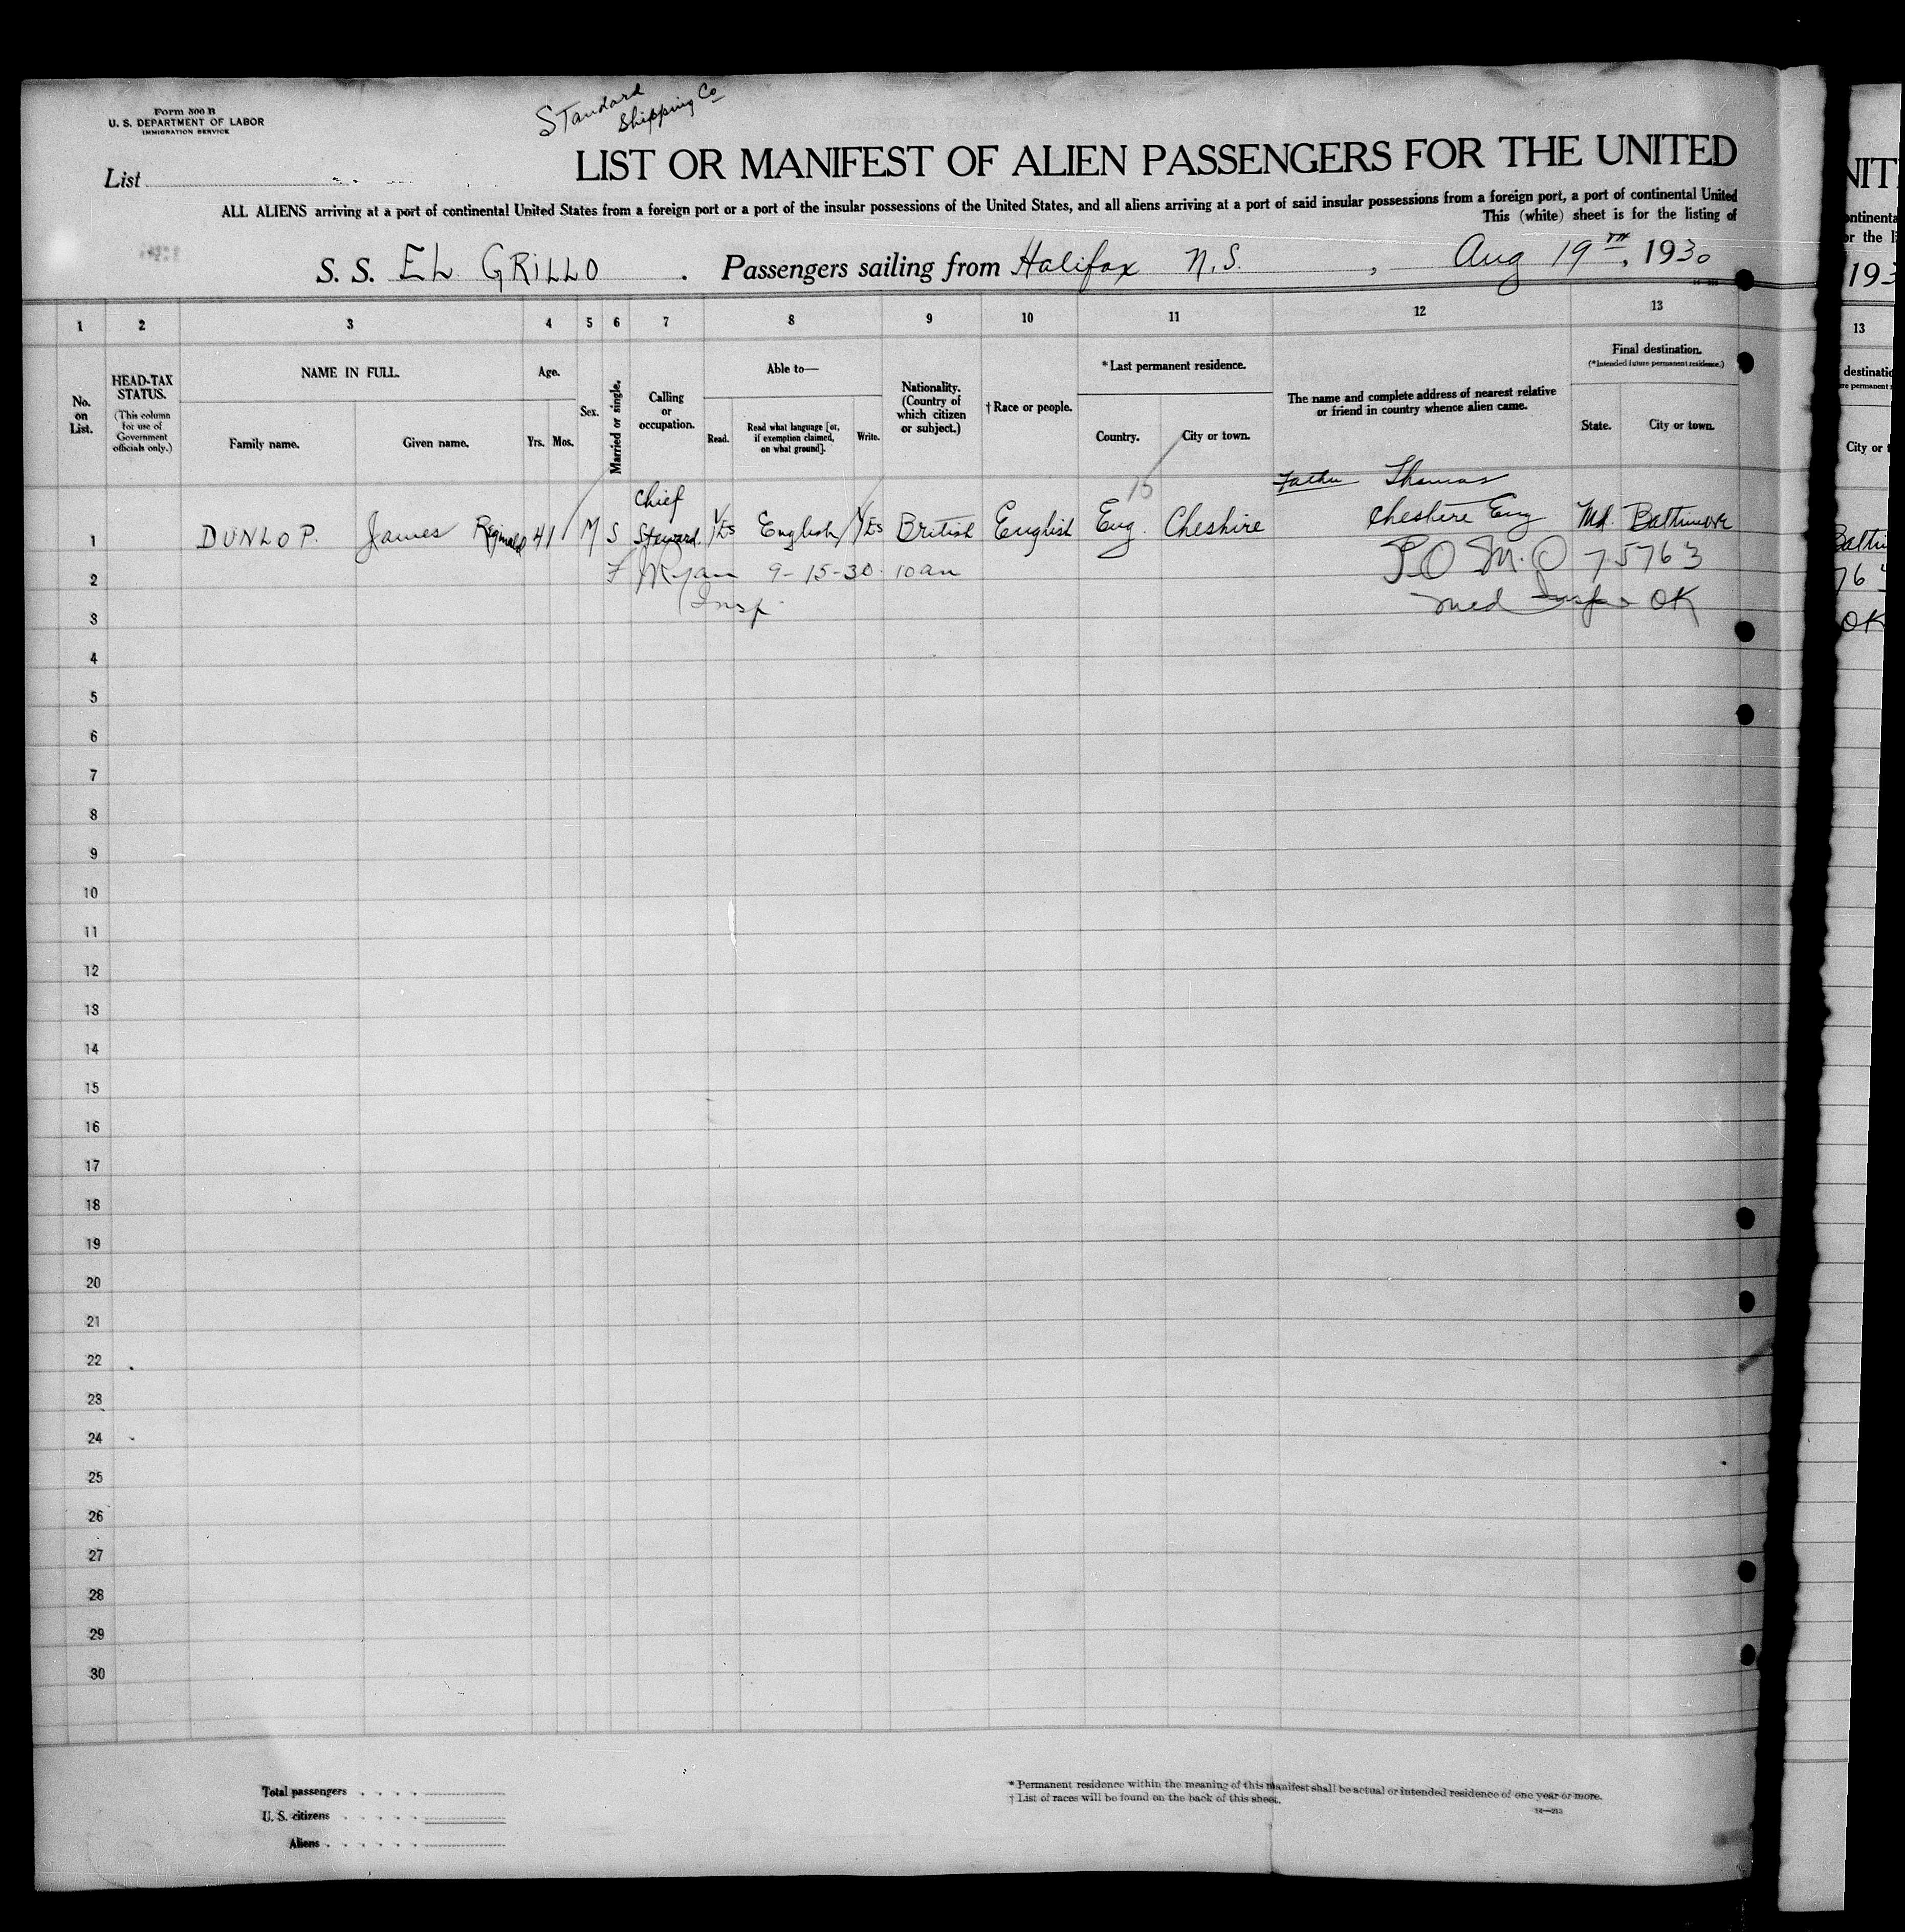 Form 500 B
U. S. DEPARTMENT OF LABOR
IMMIGRATION SERVICE
Standard
Shipping Co
List
LIST OR MANIFEST OF ALIEN PASSENGERS FOR THE UNITED
ALL ALIENS arriving at a port of continental United States from a foreign port or a port of the insular possessions of the United States, and all aliens arriving at a port of said insular possessions from a foreign port, a port of continental United
This (white) sheet is for the listing of
S. S. EL GRILLO . Passengers sailing from Halifax N.S. , Aug 19TH, 1930
1 2 3 4 5 6 7 8 9 10 11 12 13
No. on List.
HEAD-TAX STATUS.
(This column for use of Government officials only.)
NAME IN FULL.
Family name. Given name.
Age.
Yrs. Mos.
Sex.
Married or single.
Calling or occupation.
Able to—
Read. Read what language [or, if exemption claimed, on what ground]. Write.
Nationality. (Country of which citizen or subject.)
† Race or people.
* Last permanent residence.
Country. City or town.
The name and complete address of nearest relative or friend in country whence alien came.
Final destination.
(* Intended future permanent residence.)
State. City or town.
15
Father Thomas
Chief
1 DUNLOP. James Reginald 41 M S Steward. YES English YES British English Eng. Cheshire Cheshire Eng Md. Baltimore
2 Ryan 9-15-30. 10am 75763
Insp.
3 med OK
4
5
6
7
8
9
10
11
12
13
14
15
16
17
18
19
20
21
22
23
24
25
26
27
28
29
30
Total passengers
U. S. citizens
Aliens
* Permanent residence within the meaning of this manifest shall be actual or intended residence of one year or more.
† List of races will be found on the back of this sheet.